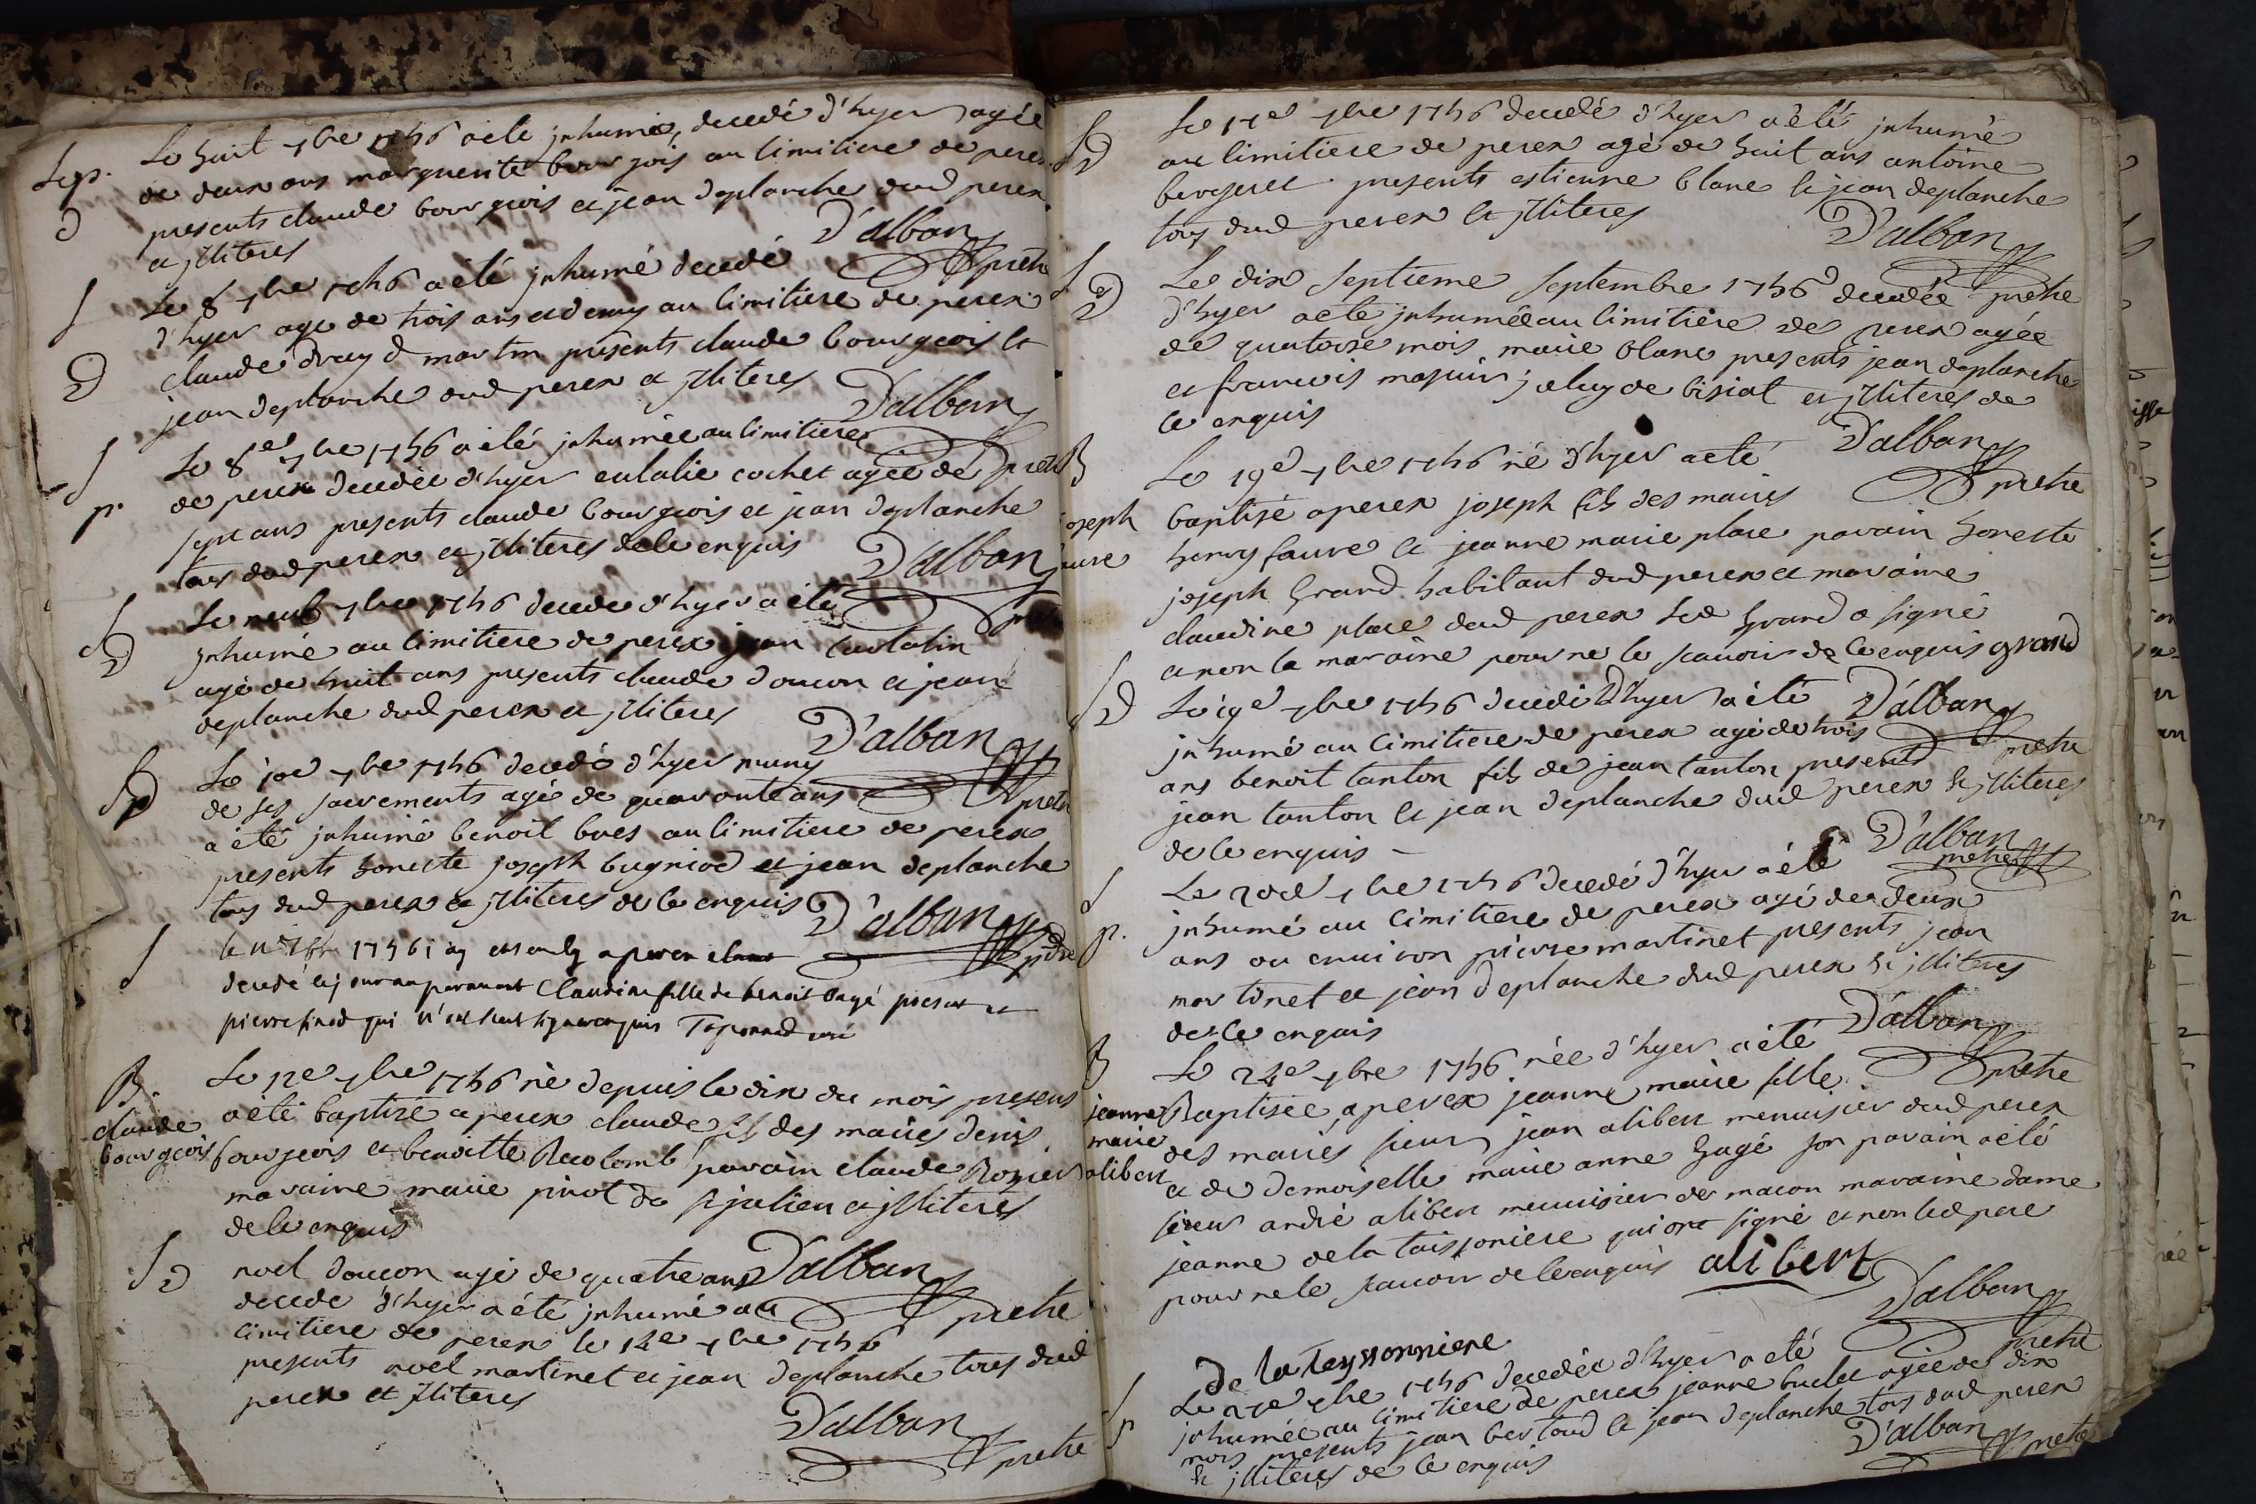 Sep. Le huit 7bre 1746 a été inhumée, decedé d'hyer agée
d de deux ans marguerite bourjois au cimitiere de perex
presents claude bourgeois et jean deplanche dud perex
et jlliteres D'alban prêtre
S Le 8 7bre 1746 a été jnhumé decedé
d'hyer age de trois ans et demy au cimitiere de perex
d claude martin presents claude bourgeois et
jean deplanche dud perex et jlliteres D'alban
S Le 8e 7bre 1746 a été jnhumée au cimitiere prêtre
p. de perex decedée d'hyer eulalie cochet agée de
sept ans presents claude bourgeois et jean deplanche
tous dud perex et jlliteres de ce enquis D'alban
S Le neuf 7bre 1746 decedé d'hyer a été
d jnhumé au cimitiere de perex jean
agé de huit ans presents claude doucon et jean
deplanche dud perex et jlliteres D'alban
Sp Le 10e 7bre 1746 decedé d'hyer muny prêtre
de ses sacrements agé de quarante ans
a été jnhumé benoit bues au cimitiere de perex
presents honeste joseph bugniod et jean deplanche
tous dud perex et jlliteres de ce enquis D'alban
S 1746 a perex
decedé le jour auparavant Claudine fille de benoit present et
pierre qui n'ont signer enquis
B. Le 12e 7bre 1746 né depuis le dix du mois present
claude a été baptizé a perex claude fils des mariés denis
bourgeois bourgeois et benoitte Recolomb parain claude Rozier
maraine marie pinot de st julien et jlliteres
de ce enquis
Sd noel doucon agé de quatre ans D'alban
decedé d'hyer a été jnhumé au prêtre
cimitiere de perex le 14e 7bre 1746
presents noel martinet et jean deplanche tous dud
perex et jlliteres
D'alban
prêtre
Sd Le 17e 7bre 1746 decedé d'hyer a été jnhumé
au cimitiere de perex agé de huit ans antoine
bergeret presents estienne blanc et jean deplanche
tous dud perex et jlliteres D'alban
Sd Le dix septieme septembre 1746 decedée prêtre
d'hyer a été jnhumée au cimitiere de perex agée
de quatorze mois marie blanc presents jean deplanche
et francois majuin, celuy de biziat et jlliteres de
ce enquis D'alban
B Le 19e 7bre 1746 né d'hyer a été prêtre
joseph baptisé a perex joseph fils des mariés
faure henry faure et jeanne marie place parain honeste
joseph Grand habitant dud perex et maraine
claudine place dud perex led Grand a signé
et non la maraine pour ne le scavoir de ce enquis grand
Sd Le 19e 7bre 1746 decedé d'hyer a été D'alban
jnhumé au cimitiere de perex agé de trois prêtre
ans benoit tanton fils de jean tanton presents
jean tanton et jean deplanche dud perex et jlliteres
de ce enquis D'alban prêtre
S Le 20e 7bre 1746 decedé d'hyer a été
p. jnhumé au cimitiere de perex agé de deux
ans ou environ pierre martinet presents jean
martinet et jean deplanche dud perex et jlliteres
de ce enquis D'alban
B Le 24e 7bre 1746 née d'hyer a été prêtre
jeanne Baptisée a perex jeanne marie fille
marie des mariés sieur jean alibert menuisier dud perex
alibert et de demoiselle marie anne Gagé son parain a été
sieur andré alibert menuisier de macon maraine dame
jeanne de la taissoniere qui ont signé et non led pere
pour ne le scavoir de ce enquis alibert
D'alban
De la teyssonniere prêtre
Le 7bre 1746 decedée d'hyer a été
Sp jnhumée au cimitiere de perex jeanne buclet agée de dix
mois presents jean bertoud et jean deplanche tous dud perex
et jlliteres de ce enquis D'alban prêtre